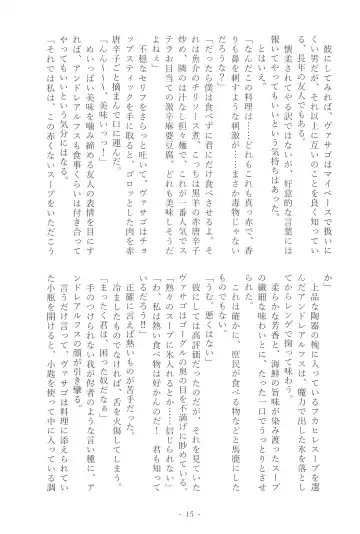 彼にしてみれば、ヴァサゴはマイペースで扱いに
くい男だが、それ以上に互いのことを良く知ってい
る、長年の友人でもある。
懐柔されてやる訳ではないが、好意的な言葉には
報いてやってもいいという気持ちはあった。
とはいえ。
「なんだこの料理は……どれもこれも真っ赤で、香
りも鼻を刺すような刺激が……まさか毒物じゃない
だろうな？」
「だったら僕は食べずに君にだけ食べさせるよ。そ
れは魚介のチリソース煮、こちは黒羊の赤唐辛子
炒め、隣のは汁なし担々麺で、これが一番人気でス
テラお目当ての激辛麻婆豆腐。どれも美味しそうだ
よねぇ」
不穏なセリフをさらっと吐いて、ヴァサゴはチョ
ップスティックを手に取ると、ゴロッとした肉を赤
唐辛子ごと摘まんで口に運んだ。
「んん〜〜〜、美味いっっ！」
めいっぱい美味を噛み締める友人の表情を目にす
れば、アンドレアルフスも食事くらいは付き合って
やってもいいという気分にはなる。
「それでは私は、この赤くないスープをいただこう
か」
上品な陶器の椀に入っているフカヒレスープを選
んだアンドレアルフスは、魔力で出した氷を落とし
てからレンゲで掬って味わう。
柔らかな芳香と、海鮮の旨味が染み渡ったスープ
の繊細な味わいに、たった一口でうっとりとさせ
られた。
これは確かに、庶民が食べる物などと馬鹿にした
ものでもない。
「うむ、悪くはない」
彼にしては高評価だったのだが、それを見ていた
ヴァサゴはゴーグルの奥の目を不満げに眇めている。
「熱々のスープに氷入れるとか……信じられない」
「わ、私は熱い食べ物は好かんのだ！　君も知って
いるだろう!!」
正確に言えば熱いものが苦手だった。
冷ましたものでなければ、舌を火傷してしまう。
「まったく君は、困った奴だなぁ」
手のつけられない我が侭者のような言い種に、ア
ンドレアルフスの顔が引き攣る。
言うだけ言って、ヴァサゴは料理に添えられてい
た小瓶を開けると、小匙を使って中に入っている調
- 15 -